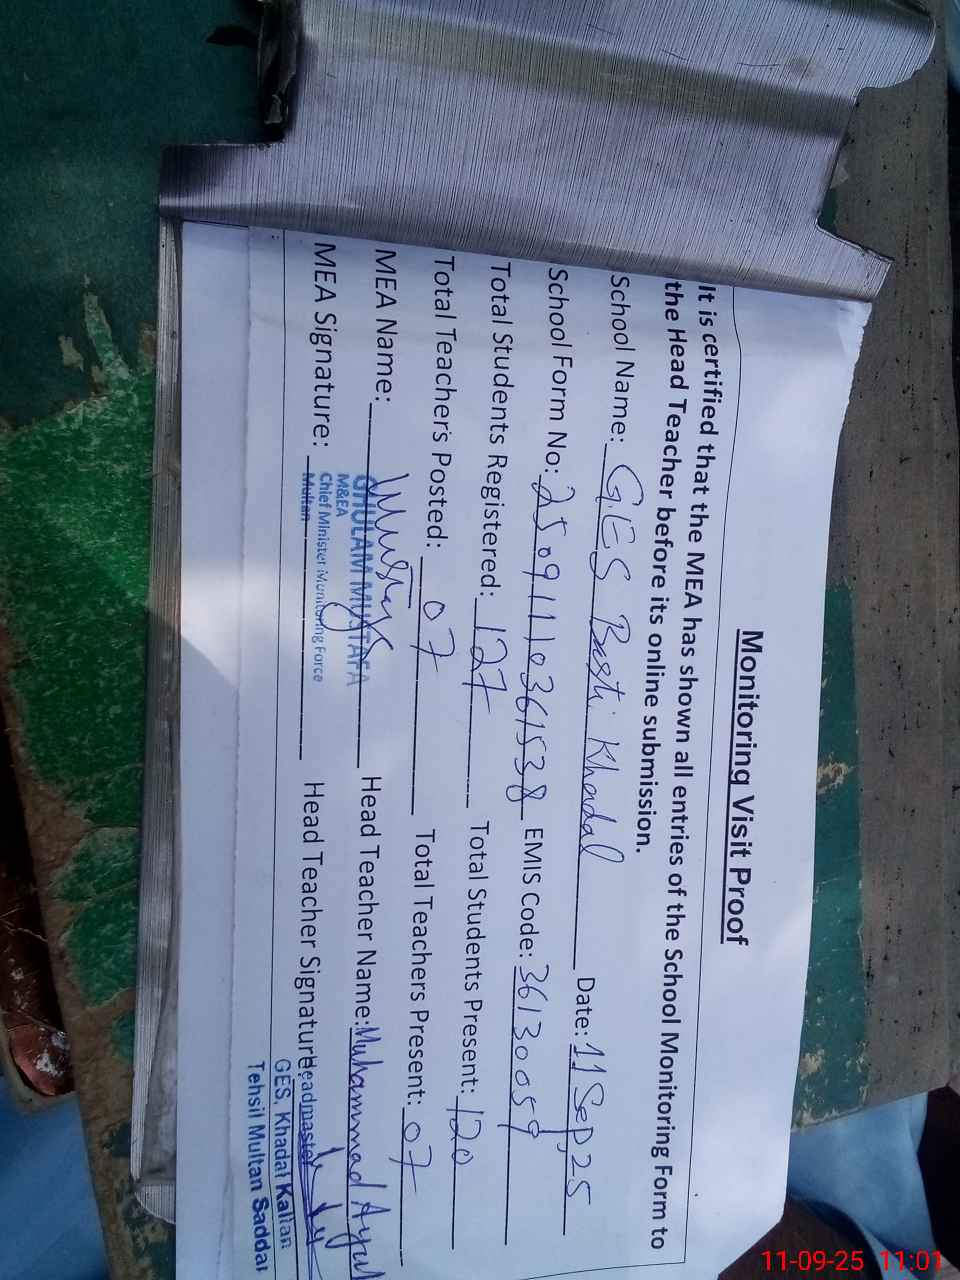 Monitoring Visit Proof
It is certified that the MEA has shown all entries of the School Monitoring Form to
the Head Teacher before its online submission.
School Name: G.E.S Basti Khadal Date: 11 Sep, 25
School Form No: 25091110361538 EMIS Code: 36130059
Total Students Registered: 127 Total Students Present: 120
Total Teachers Posted: 07 Total Teachers Present: 07
MEA Name: GHULAM MUSTAFA Head Teacher Name: Muhammad Ayub
M&EA
Chief Minister Monitoring Force
Multan
MEA Signature: Head Teacher Signature:
Headmaster
GES. Khadal Kallan
Tehsil Multan Saddar
11-09-25 11:01